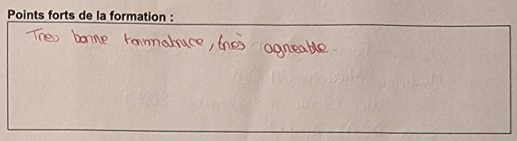 Points forts de la formation :
Tres bonne formatrice, très agréable.